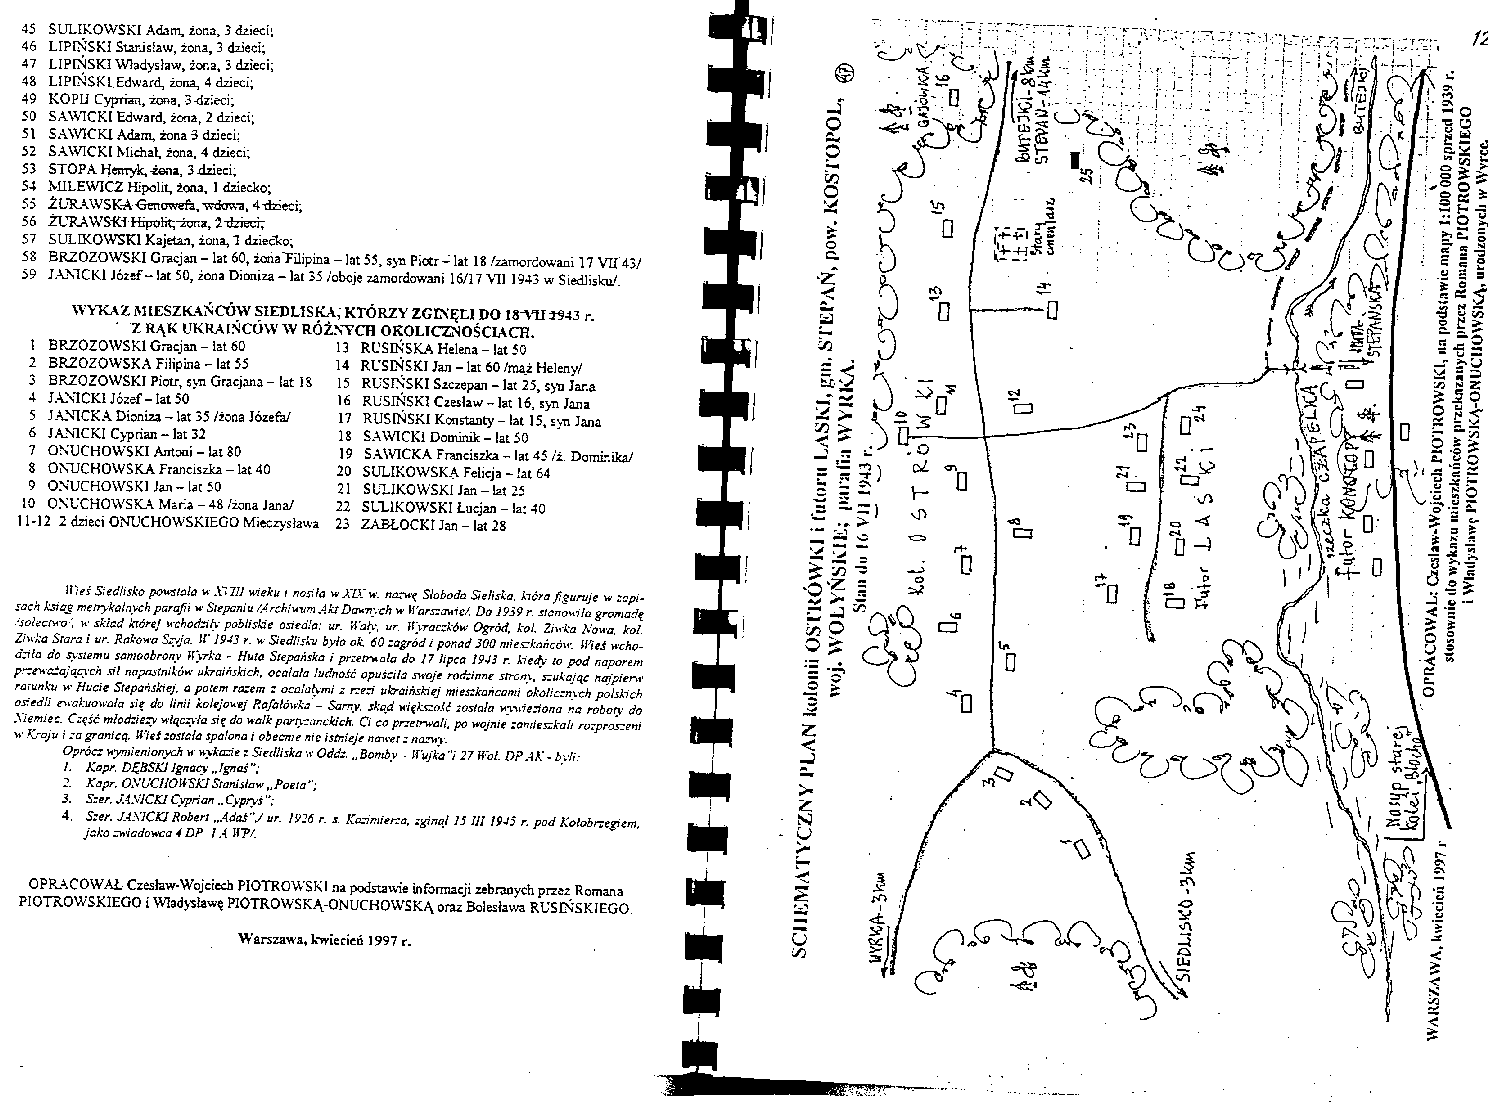 45 SULIKOWSKI Adam, żona, 3 dzieci;
46 LIPIŃSKI Stanisław, żona, 3 dzieci;
47 LIPIŃSKI Władysław, żona, 3 dzieci;
48 LIPIŃSKI Edward, żona, 4 dzieci;
49 KOPIJ Cyprian, żona, 3 dzieci;
50 SAWICKI Edward, żona, 2 dzieci;
51 SAWICKI Adam, żona 3 dzieci;
52 SAWICKI Michał, żona, 4 dzieci;
53 STOPA Henryk, żona, 3 dzieci;
54 MILEWICZ Hipolit, żona, 1 dziecko;
55 ŻURAWSKA Genowefa, wdowa, 4 dzieci;
56 ŻURAWSKI Hipolit, żona, 2 dzieci;
57 SULIKOWSKI Kajetan, żona, 1 dziecko;
58 BRZOZOWSKI Gracjan – lat 60, żona Filipina – lat 55, syn Piotr – lat 18 /zamordowani 17 VII 43/
59 JANICKI Józef – lat 50, żona Dioniza – lat 35 /oboje zamordowani 16/17 VII 1943 w Siedlisku/.
WYKAZ MIESZKAŃCÓW SIEDLISKA, KTÓRZY ZGINĘLI DO 18 VII 1943 r.
Z RĄK UKRAIŃCÓW W RÓŻNYCH OKOLICZNOŚCIACH.
1 BRZOZOWSKI Gracjan – lat 60
2 BRZOZOWSKA Filipina – lat 55
3 BRZOZOWSKI Piotr, syn Gracjana – lat 18
4 JANICKI Józef – lat 50
5 JANICKA Dioniza – lat 35 /żona Józefa/
6 JANICKI Cyprian – lat 32
7 ONUCHOWSKI Antoni – lat 80
8 ONUCHOWSKA Franciszka – lat 40
9 ONUCHOWSKI Jan – lat 50
10 ONUCHOWSKA Maria – 48 /żona Jana/
11-12 2 dzieci ONUCHOWSKIEGO Mieczysława
13 RUSIŃSKA Helena – lat 50
14 RUSIŃSKI Jan – lat 60 /mąż Heleny/
15 RUSIŃSKI Szczepan – lat 25, syn Jana
16 RUSIŃSKI Czesław – lat 16, syn Jana
17 RUSIŃSKI Konstanty – lat 15, syn Jana
18 SAWICKI Dominik – lat 50
19 SAWICKA Franciszka – lat 45 /ż. Dominika/
20 SULIKOWSKA Felicja – lat 64
21 SULIKOWSKI Jan – lat 25
22 SULIKOWSKI Łucjan – lat 40
23 ZABŁOCKI Jan – lat 28
Wieś Siedlisko powstała w XVIII wieku i nosiła w XIX w. nazwę Słoboda Sieliska, która figuruje w zapi-
sach ksiąg metrykalnych parafii w Stepaniu /Archiwum Akt Dawnych w Warszawie/. Do 1939 r. stanowiła gromadę
/sołectwo/, w skład której wchodziły pobliskie osiedla: ur. Wały, ur. Wyraczków Ogród, kol. Ziwka Nowa, kol.
Ziwka Stara i ur. Rakowa Szyja. W 1943 r. w Siedlisku było ok. 60 zagród i ponad 300 mieszkańców. Wieś wcho-
dziła do systemu samoobrony Wyrka - Huta Stepańska i przetrwała do 17 lipca 1943 r. kiedy to pod naporem
przeważających sił napastników ukraińskich, ocalała ludność opuściła swoje rodzinne strony, szukając najpierw
ratunku w Hucie Stepańskiej, a potem razem z ocalałymi z rzezi ukraińskiej mieszkańcami okolicznych polskich
osiedli ewakuowała się do linii kolejowej Rafałówka – Sarny, skąd większość została wywieziona na roboty do
Niemiec. Część młodzieży włączyła się do walk partyzanckich. Ci co przetrwali, po wojnie zamieszkali rozproszeni
w Kraju i za granicą. Wieś została spalona i obecnie nie istnieje nawet z nazwy.
Oprócz wymienionych w wykazie z Siedliska w Oddz. „Bomby - Wujka" i 27 Woł. DP AK - byli:
1. Kapr. DĘBSKI Ignacy „Ignaś";
2. Kapr. ONUCHOWSKI Stanisław „Poeta";
3. Szer. JANICKI Cyprian „Cypryś";
4. Szer. JANICKI Robert „Adaś",/ ur. 1926 r. s. Kazimierza, zginął 15 III 1945 r. pod Kołobrzegiem,
jako zwiadowca 4 DP I A WP/.
OPRACOWAŁ Czesław-Wojciech PIOTROWSKI na podstawie informacji zebranych przez Romana
PIOTROWSKIEGO i Władysławę PIOTROWSKĄ-ONUCHOWSKĄ oraz Bolesława RUSIŃSKIEGO.
Warszawa, kwiecień 1997 r.
12
SCHEMATYCZNY PLAN kolonii OSTRÓWKI i futoru LASKI, gm. STEPAŃ, pow. KOSTOPOL,
woj. WOŁYŃSKIE; parafia WYRKA.
Stan do 16 VII 1943 r.
WYRKA-3km
SIEDLISKO-3km
Kol. OSTROWKI
GAJÓWKA
BUTEJKI-8km
STEPAŃ-14km
Stary
cmentarz
Futor LASKI
rzeczka CZAPELKA
Futor KONOTOPY
HUTA-
STEPAŃSKA
BUTEJKI
Nasyp starej
kolei
1
2
3
4
5
6
7
8
9
10
11
12
13
14
15
16
17
18
19
20
21
22
23
24
25
OPRACOWAŁ: Czesław-Wojciech PIOTROWSKI, na podstawie mapy 1:100 000 sprzed 1939 r.
stosownie do wykazu mieszkańców przekazanych przez Romana PIOTROWSKIEGO
i Władysławę PIOTROWSKĄ-ONUCHOWSKĄ, urodzonych w Wyrce.
WARSZAWA, kwiecień 1997 r